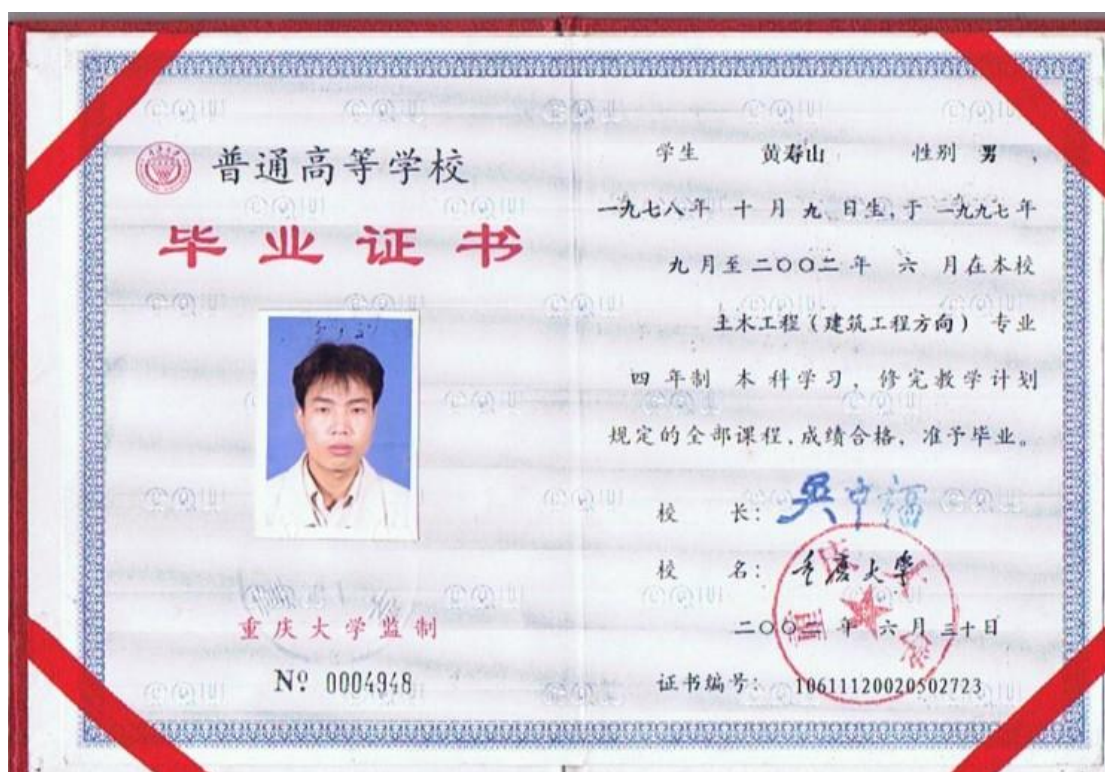 普通高等学校
毕业证书
重庆大学监制
Nº 0004948
学生 黄寿山 性别 男 ，
一九七八年 十 月 九 日生,于 一九九七年
九 月至 二〇〇二 年 六 月在本校
土木工程（建筑工程方向） 专业
四 年制 本 科学习，修完教学计划
规定的全部课程,成绩合格，准予毕业。
校 长: 吴中福
校 名: 重庆大学
二〇〇二 年 六 月 三十日
证书编号： 10611120020502723